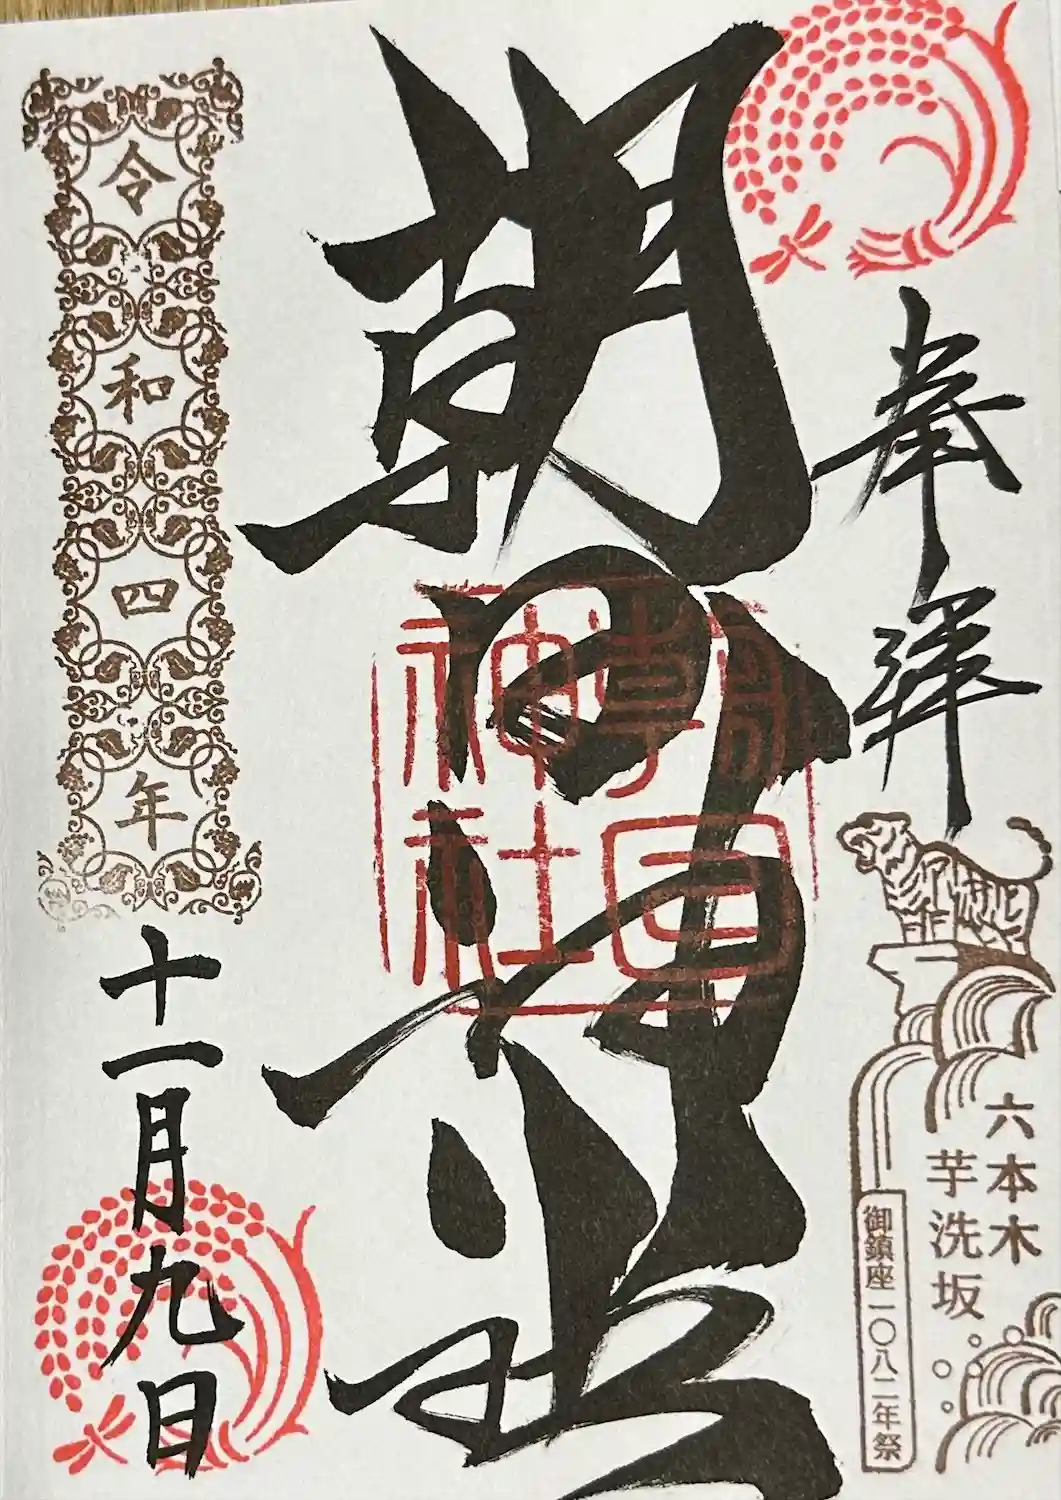 奉拝
六本木
芋洗坂
御鎮座一〇八二年祭
朝日神社
朝日神社
令和四年
十一月九日